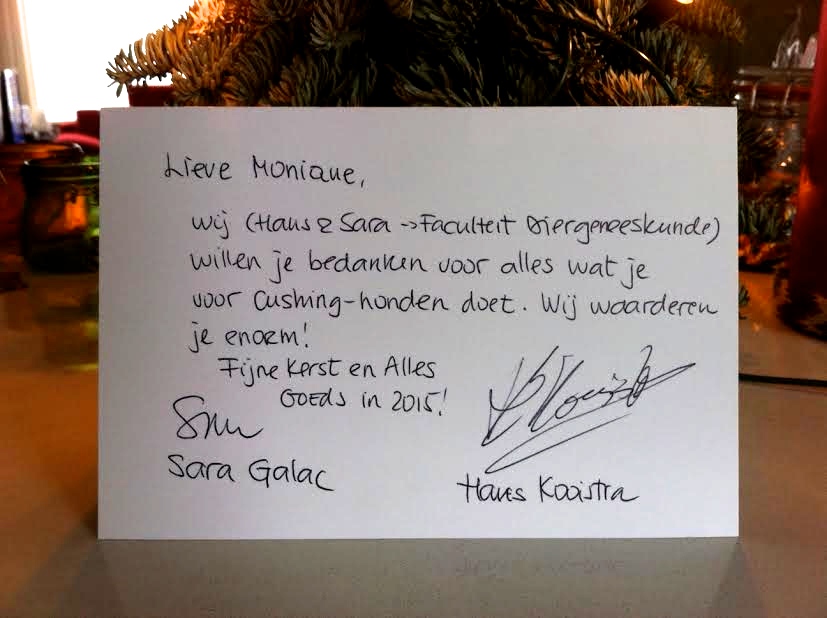 Lieve Monique,
wij (Hans & Sara → Faculteit Diergeneeskunde)
willen je bedanken voor alles wat je
voor Cushing-honden doet. Wij waarderen
je enorm!
Fijne Kerst en Alles
Goeds in 2015!
Sara Galac
Hans Kooistra